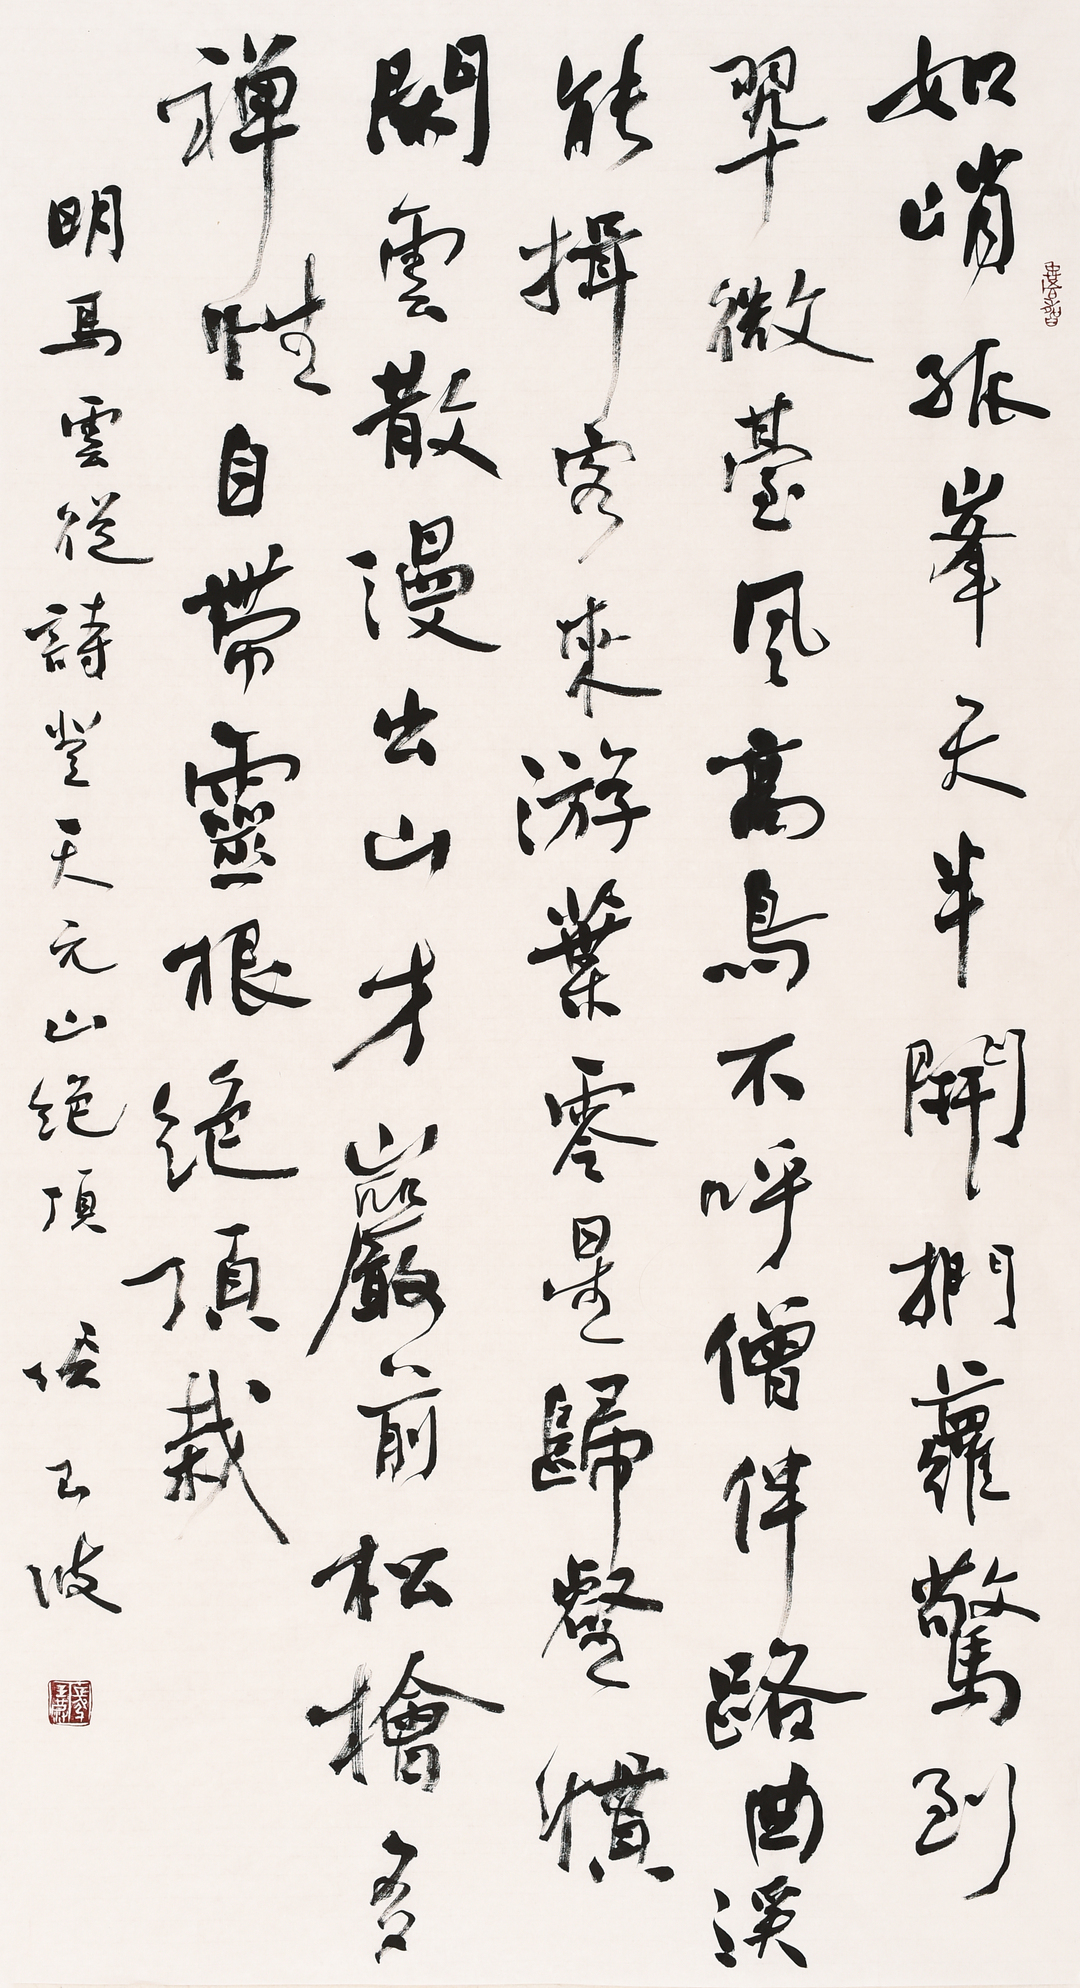 如峭孤峯天半開捫蘿驚到
翠微臺風高鳥不呼僧伴路曲溪
能揖客來游葉零星歸壑慣
閑雲散漫出山才巖前松檜多
禪性自帶靈根絕頂栽
明馬雲從詩登天元山絕頂 玉波